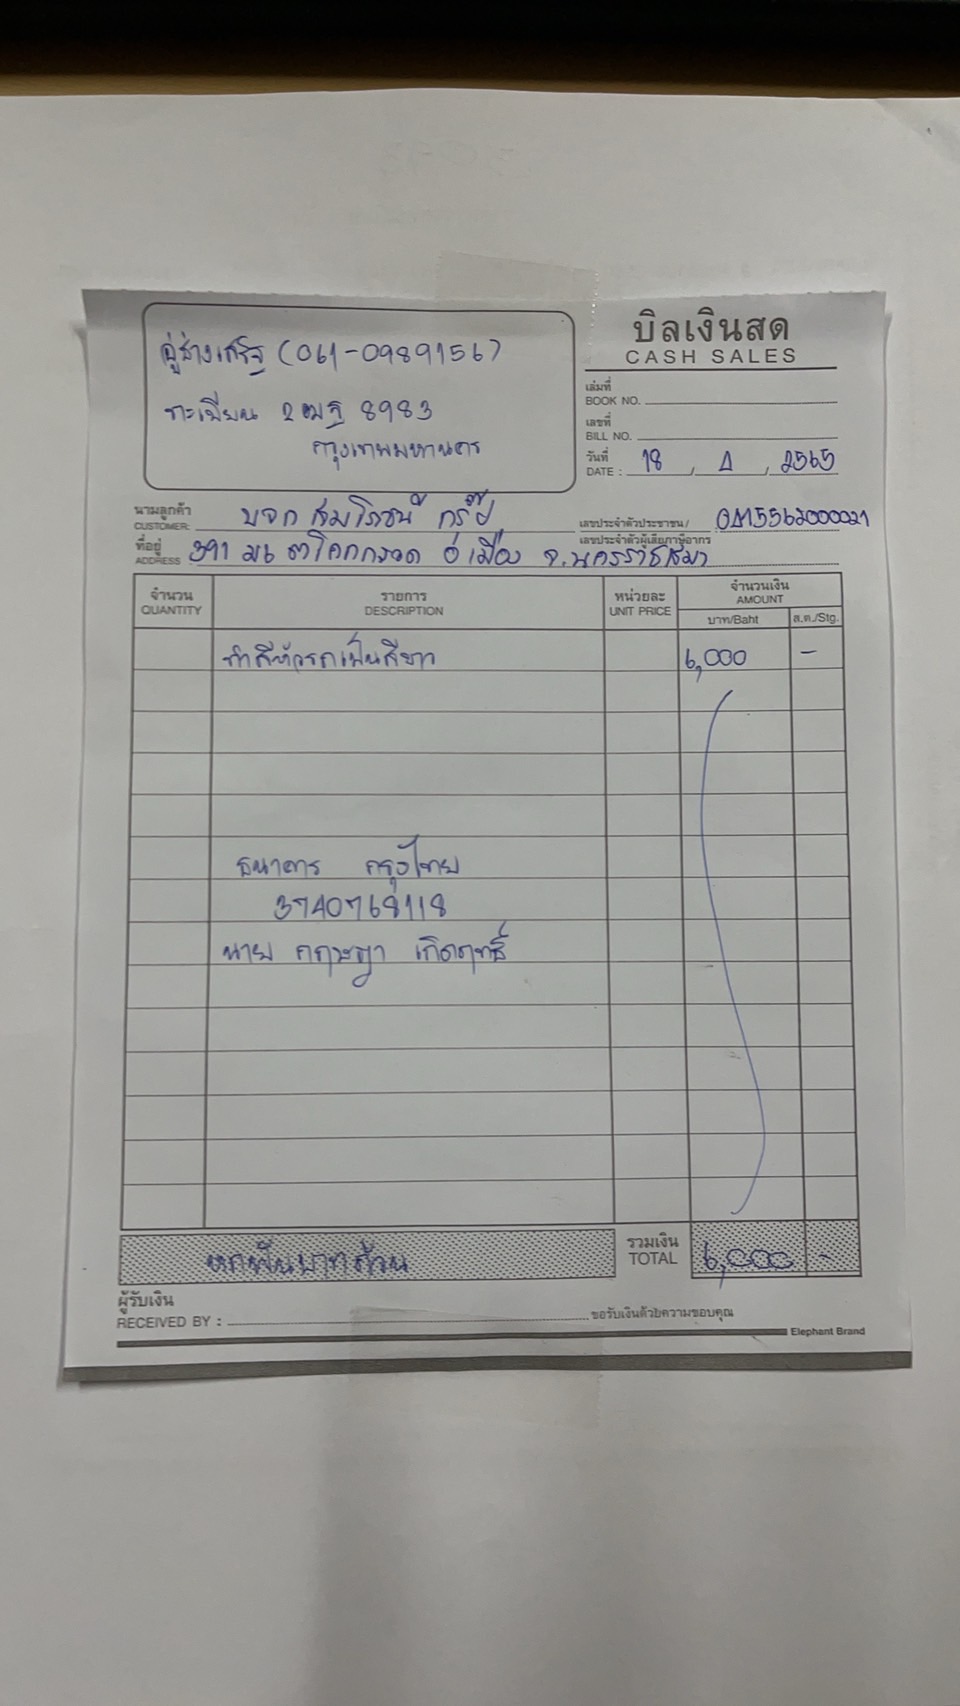 อู่ช่างเสริฐ (061-0989156)
ทะเบียน 2ฒฐ 8983
กรุงเทพมหานคร
บิลเงินสด
CASH SALES
เล่มที่
BOOK NO.
เลขที่
BILL NO.
วันที่
DATE : 18 2565
นามลูกค้า
CUSTOMER: บจก สมโภชน์ กรุ๊ป
เลขประจำตัวประชาชน/
เลขประจำตัวผู้เสียภาษีอากร
ที่อยู่
ADDRESS ต โคกกรวด อ เมือง จ.นครราชสีมา
จำนวน
QUANTITY
รายการ
DESCRIPTION
หน่วยละ
UNIT PRICE
จำนวนเงิน
AMOUNT
บาท/Baht ส.ต./Stg.
ทำสีหัวรถเป็นสีขาว 6,000 -
ธนาคาร กรุงไทย
3740768118
นาย กฤษฎา เกิดฤทธิ์
หกพันบาทถ้วน
รวมเงิน
TOTAL 6,000 -
ผู้รับเงิน
RECEIVED BY :
ขอรับเงินด้วยความขอบคุณ
Elephant Brand